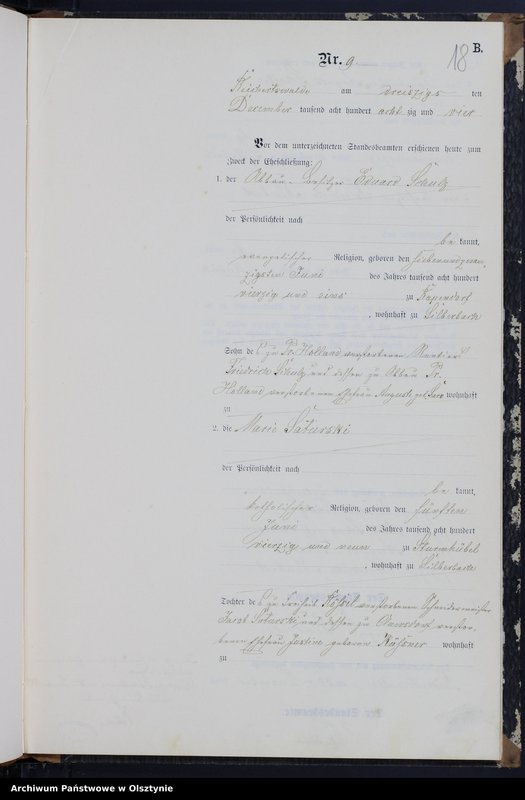 B.
Nr. 9
18
Reichertswalde am dreiszigs ten
December tausend acht hundert acht zig und vier
Vor dem unterzeichneten Standesbeamten erschienen heute zum
Zweck der Eheschließung:
1. der Besitzer Eduard Schulz
der Persönlichkeit nach
be kannt,
evangelischer Religion, geboren den siebenundzwan
zigsten Juni des Jahres tausend acht hundert
vierzig und eins zu
, wohnhaft zu Silberbach
Sohn des zu Pr. Holland verstorbenen Rentiers
Friedrich Schulz und dessen zu Pr.
Holland verstorbenen Ehefrau Auguste geb. wohnhaft
zu
2. die Marie Saturski
der Persönlichkeit nach
be kannt,
katholischer Religion, geboren den fünften
Juni des Jahres tausend acht hundert
vierzig und neun zu Sturmhübel
, wohnhaft zu Silberbach
Tochter des zu Freiheit Rössel verstorbenen Schneidermeister
Jacob Saturski und dessen zu verstor-
benen Ehefrau Justine geboren wohnhaft
zu
Der Standesbeamte
Archiwum Państwowe w Olsztynie